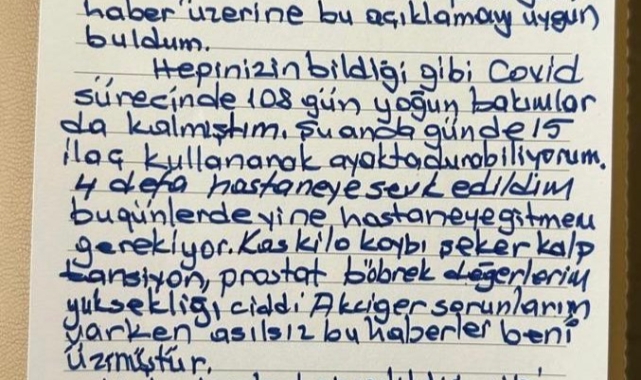 haber üzerine bu açıklamayı uygun
buldum.
Hepinizin bildiği gibi Covid
sürecinde 108 gün yoğun bakımlar
da kalmıştım. Şuanda günde 15
ilaç kullanarak ayakta durabiliyorum.
4 defa hastaneye sevk edildim
bugünlerde yine hastaneye gitmem
gerekiyor. Kas kilo kaybı şeker kalp
tansiyon, prostat böbrek değerlerim
yüksekliği ciddi Akciğer sorunlarım
varken asılsız bu haberler beni
üzmüştür.